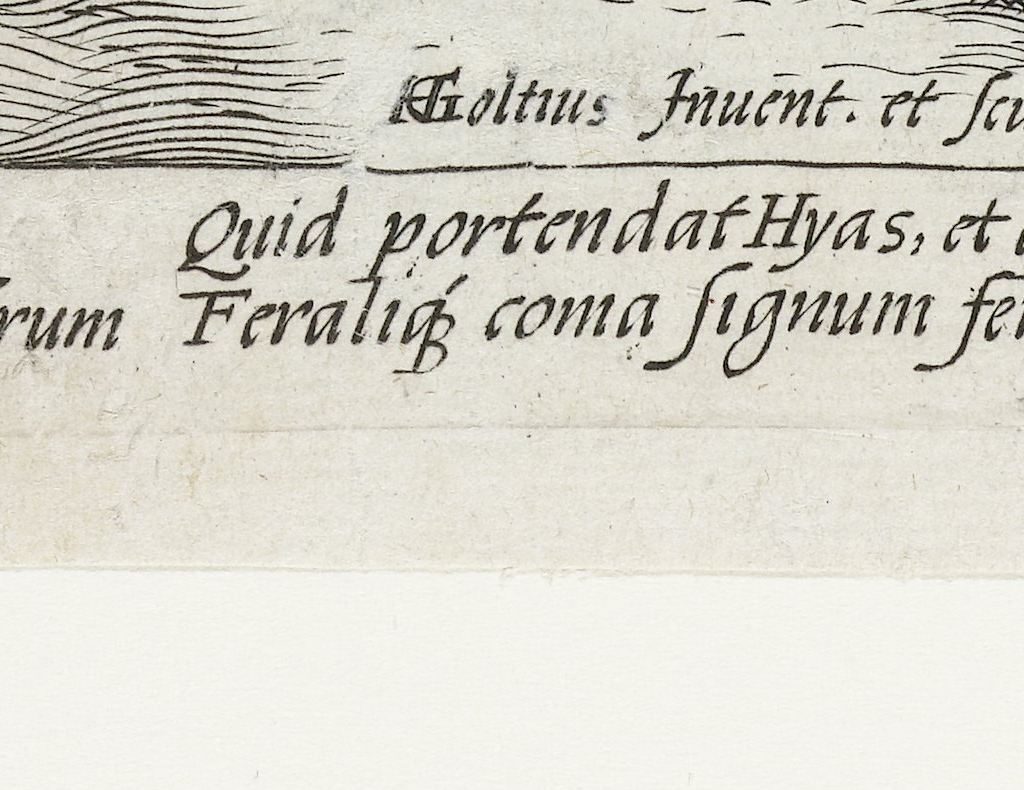 HGoltius Inuent. et scu
Quid portendat Hyas, et
rum Feraliq́ꝫ coma signum fer